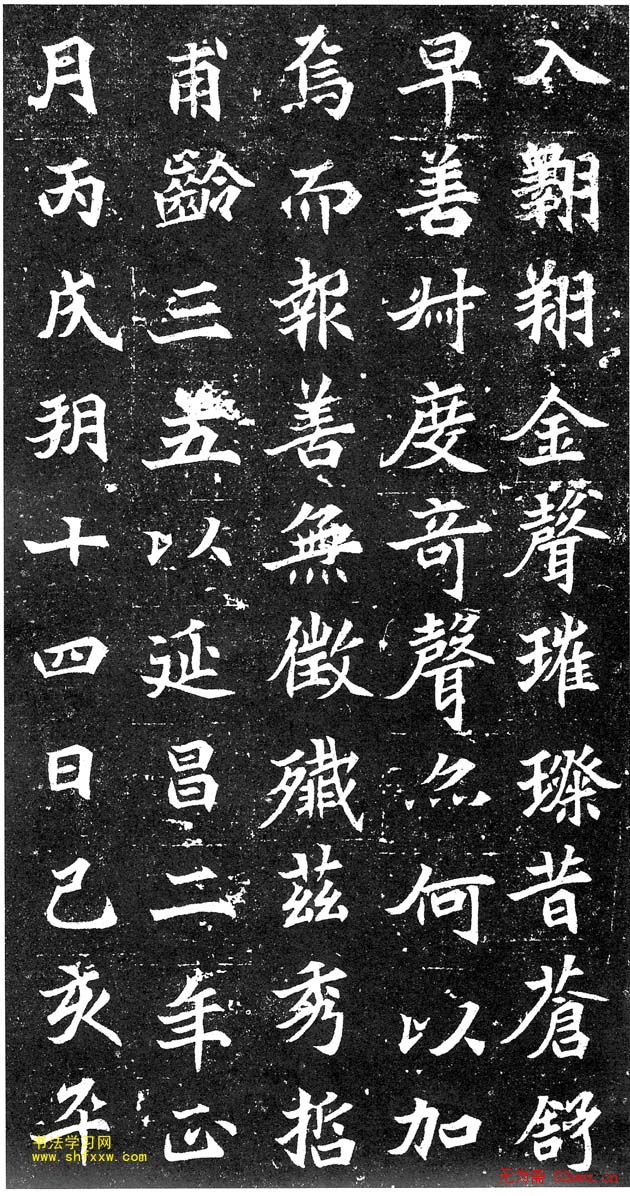 入翺翔金聲璀璨昔蒼舒
早善艸度竒聲尒何以加
焉而報善無徵殲茲秀哲
甫齡三五以延昌二年正
月丙戌玥十四日己亥卒
书法学习网
www.shfxxw.com